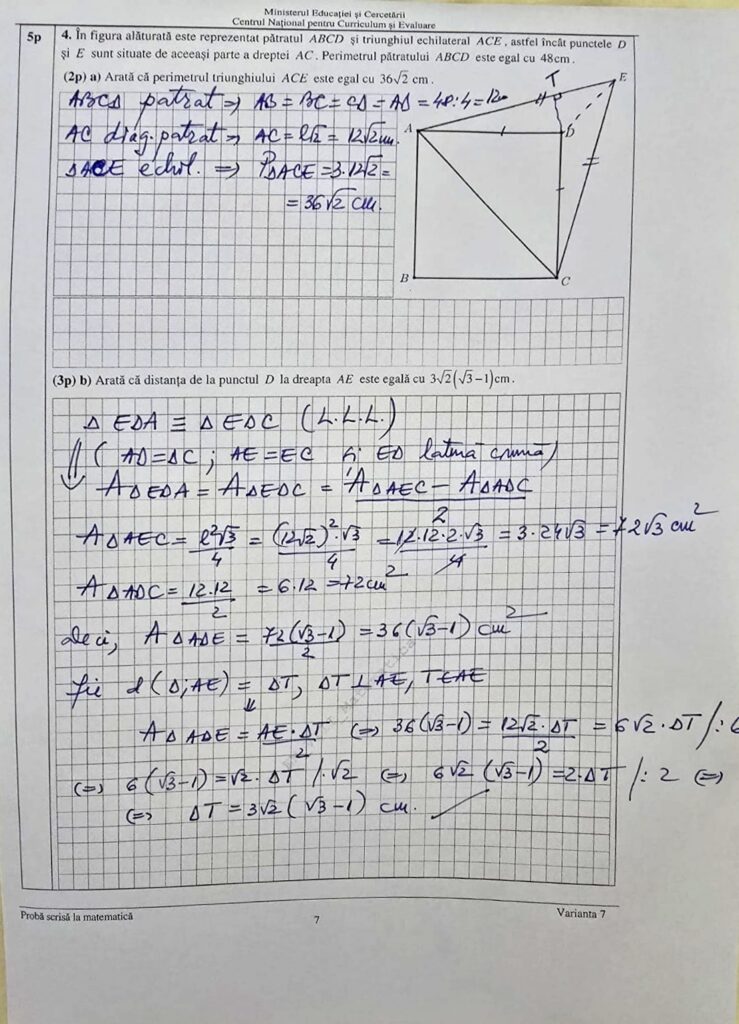 Ministerul Educației și Cercetării
Centrul Național pentru Curriculum și Evaluare
5p
4. În figura alăturată este reprezentat pătratul ABCD și triunghiul echilateral ACE, astfel încât punctele D
și E sunt situate de aceeași parte a dreptei AC. Perimetrul pătratului ABCD este egal cu 48cm.
(2p) a) Arată că perimetrul triunghiului ACE este egal cu 36√2 cm.
ABCD patrat => AB = BC = CD = AD = 48:4 = 12cm
AC diag. patrat => AC = l√2 = 12√2 cm.
Δ ACE echil. => PΔACE = 3·12√2 =
= 36√2 cm.
T
E
A
D
B
C
(3p) b) Arată că distanța de la punctul D la dreapta AE este egală cu 3√2(√3−1)cm.
Δ EDA ≡ Δ EDC (L.L.L.)
⇓ ( AD=DC ; AE=EC și ED latură comună)
AΔEDA = AΔEDC = (AΔAEC − AΔADC)/2
AΔAEC = l²√3/4 = (12√2)²·√3/4 = 12·12·2·√3/4 = 3·24√3 = 72√3 cm²
AΔADC = 12·12/2 = 6·12 = 72cm²
Deci, AΔADE = 72(√3−1)/2 = 36(√3−1) cm²
Fie d(D;AE) = DT, DT⊥AE, T∈AE
⇓
AΔADE = AE·DT/2 (=) 36(√3−1) = 12√2·DT/2 = 6√2·DT /:6
(=) 6(√3−1) = √2·DT /·√2 (=) 6√2(√3−1) = 2·DT /:2 (=)
(=) DT = 3√2(√3−1) cm.
Probă scrisă la matematică
7
Varianta 7